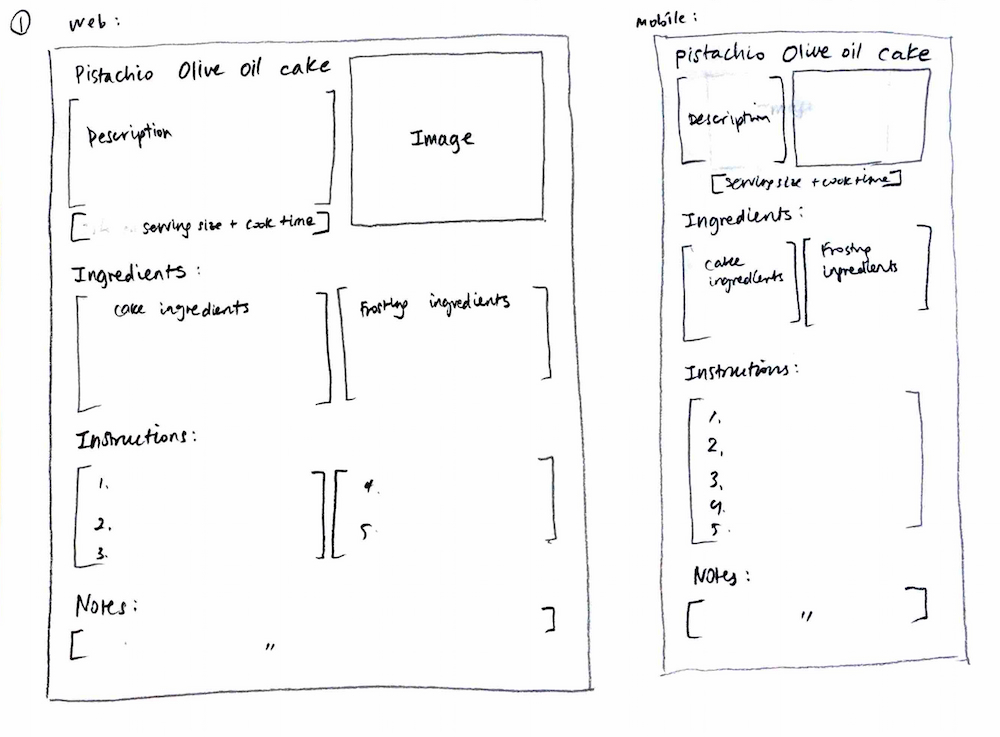 ① Web :
Pistachio Olive oil cake
Description
Image
serving size + cook time
Ingredients :
cake ingredients
Frosting ingredients
Instructions :
1.
2.
3.
4.
5.
Notes :
"
Mobile :
pistachio Olive oil cake
Description
serving size + cook time
Ingredients :
cake
ingredients
Frosting
ingredients
Instructions :
1.
2.
3.
4.
5.
Notes :
"